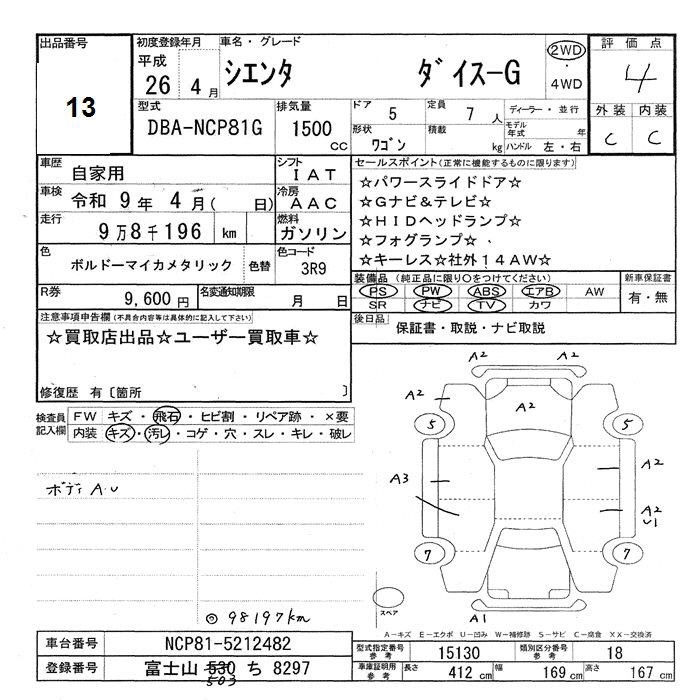 出品番号
13
初度登録年月
平成
26 4 月
車名・グレード
シエンタ ダイスーG
2WD
・
4WD
評価点
4
型式
DBA-NCP81G
排気量
1500
CC
ドア 5
定員 7 人
ディーラー・並行
形状 ワゴン
積載 kg
モデル年式 年
ハンドル 左・右
外装 内装
C C
車歴 自家用
シフト IAT
車検 令和 9 年 4 月( 日)
冷房 AAC
走行 9万8千196 km
燃料 ガソリン
色 ボルドーマイカメタリック 色替
色コード 3R9
R券 9,600円
名変通知期限 月 日
セールスポイント(正常に機能するものに限ります)
☆パワースライドドア☆
☆Gナビ&テレビ☆
☆HIDヘッドランプ☆
☆フォグランプ☆
☆キーレス☆社外14AW☆
装備品 (純正品に限り○をつけてください)
PS PW ABS エアB AW
SR ナビ TV カワ
新車保証書
有・無
後日品 保証書・取説・ナビ取説
注意事項申告欄(不具合内容等は具体的に記入して下さい)
☆買取店出品☆ユーザー買取車☆
修復歴 有〔箇所 〕
検査員記入欄
FW キズ・飛石・ヒビ割・リペア跡・×要
内装 キズ・汚レ・コゲ・穴・スレ・キレ・破レ
ボディ A・U
◎98197km
A2
A2
A2
A2
5
5
A3
A2
A2
U1
7
7
スペア
A1
A-キズ E-エクボ U-凹み W-補修跡 S-サビ C-腐食 XX-交換済
車台番号 NCP81-5212482
登録番号 富士山 530 ち 8297
503
型式指定番号 参考 15130
類別区分番号 参考 18
車庫証明用 参考 長さ 412 cm 幅 169 cm 高さ 167 cm